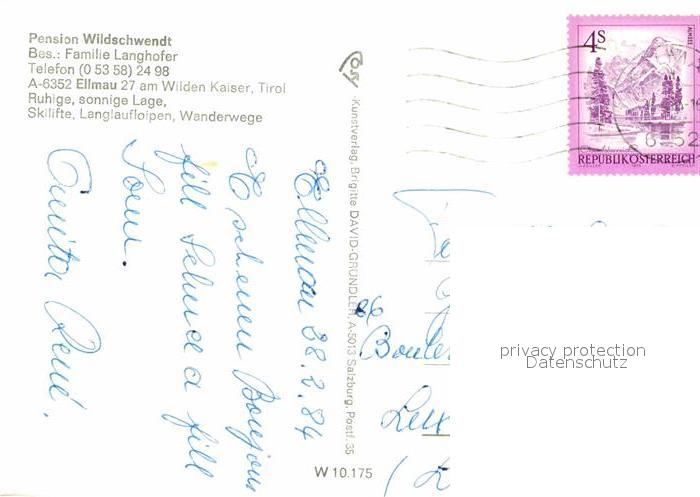 Pension Wildschwendt
Bes.: Familie Langhofer
Telefon (0 53 58) 24 98
A-6352 Ellmau 27 am Wilden Kaiser, Tirol
Ruhige, sonnige Lage,
Skilifte, Langlaufloipen, Wanderwege
Kunstverlag, Brigitte DAVID-GRÜNDLER, A-5013 Salzburg, Postf. 35
W 10.175
4S
ALMSEE
REPUBLIK ÖSTERREICH
Ellmau 28.2.84
E schenen Bonjour
fill Schnee a fill
Sonn.
René.
26
privacy protection
Datenschutz